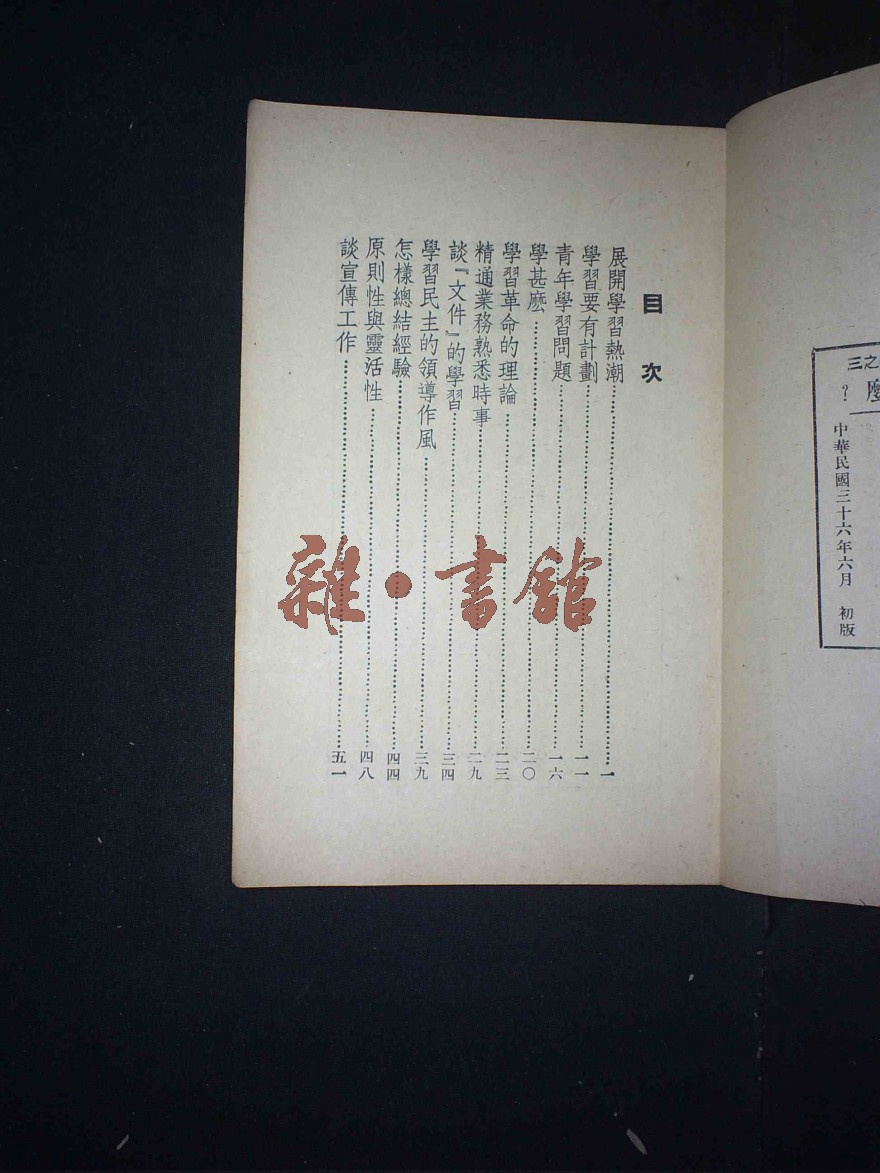 三之
麼
？
中華民國三十六年六月　初版
目次
展開學習熱潮……一
學習要有計劃……一一
青年學習問題……一六
學甚麽……二〇
學習革命的理論……二三
精通業務熟悉時事……二九
談『文件』的學習……三四
學習民主的領導作風……三九
怎樣總結經驗……四四
原則性與靈活性……四八
談宣傳工作……五一
雜·書館